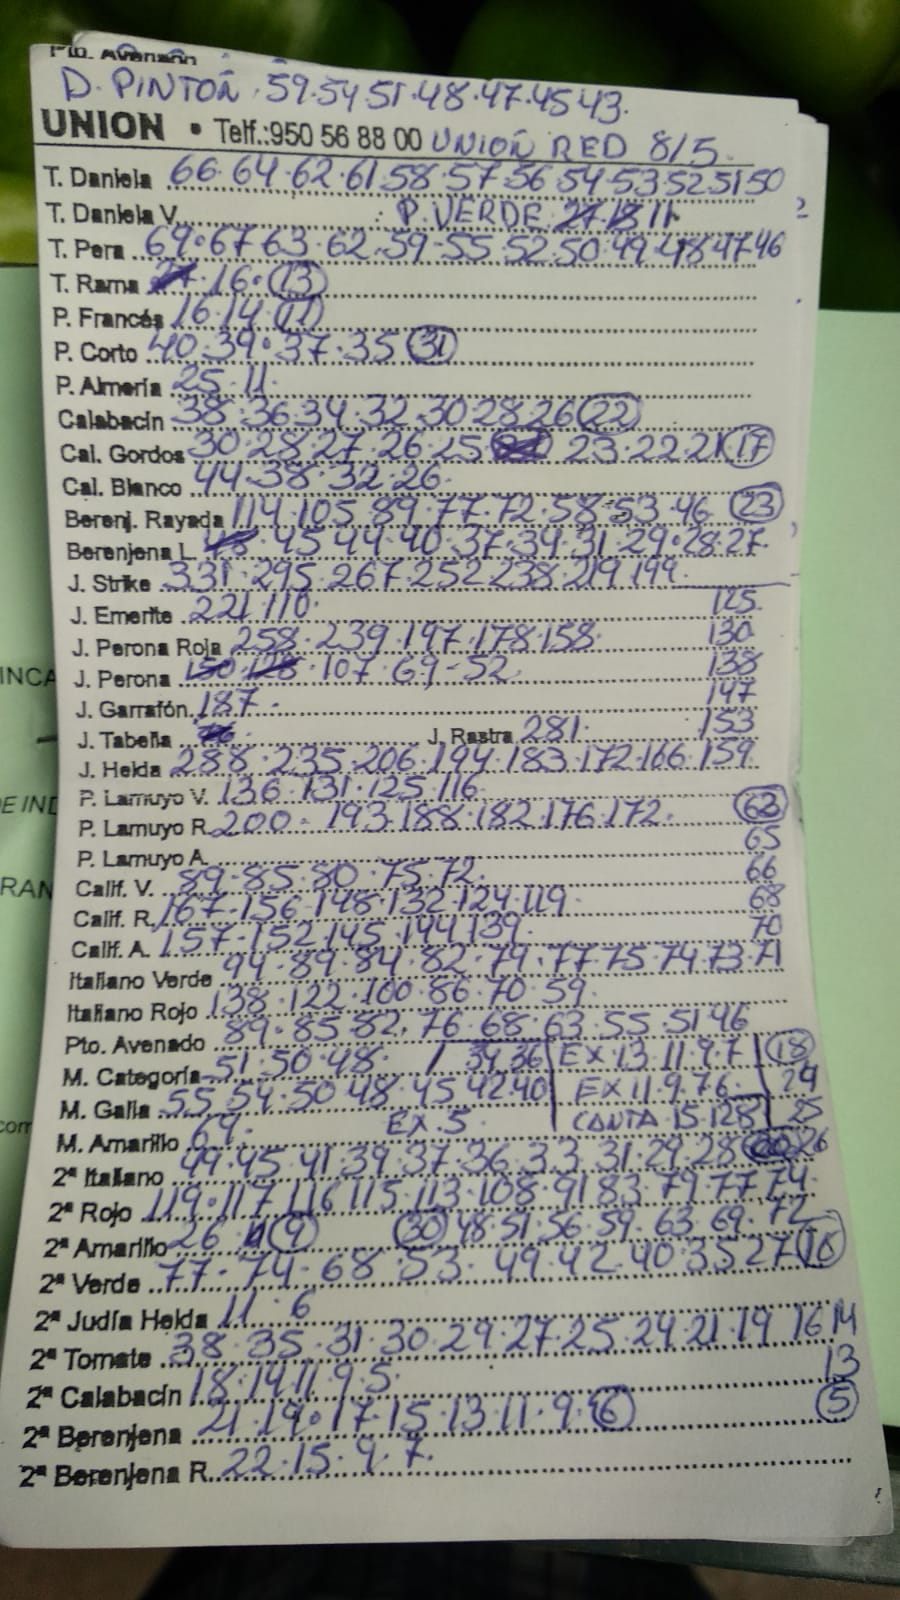 Pto. Avenado
D. PINTON 59·54 51·48·47·45 43.
UNION • Telf.:950 56 88 00 UNION RED 8/5
T. Daniela 66·64·62·61·58·57·56 54·53·52·51·50
T. Daniela V. P. VERDE 11
T. Pera 69·67 63·62·59-55 52·50·49·48·47·46
T. Rama 16·(13)
P. Francés 16·14 (11)
P. Corto 40·39·37·35 (31)
P. Almería 25·11·
Calabacín 38·36·34·32·30·28·26 (22)
Cal. Gordos 30·28·27·26·25 23·22·21 (17)
Cal. Blanco 44·38·32·26·
Berenj. Rayada 114·105·89·77·72·58·53·46 (23)
Berenjena L. 48 45·44·40·37·34·31·29·28·27
J. Strike 331·295·267·252·238·219·199
J. Emerite 221·110· 125
J. Perona Roja 258·239·197·178·158 130
J. Perona 150·128·107·69-52 138
J. Garrafón 187 147
J. Tabeña J. Rastra 281· 153
J. Helda 288·235·206·194·183·172·166·159
P. Lamuyo V. 136·131·125·116
P. Lamuyo R. 200·193·188·182·176·172· (63)
P. Lamuyo A. 65
Calif. V. 89·85·80·75·72· 66
Calif. R. 167·156·148·132·124·119 68
Calif. A. 157-152 145·144 139 70
Italiano Verde 94·89·84·82·79·77 75·74 73·71
Italiano Rojo 138·122·100·86·70·59
Pto. Avenado 89·85 82·76·68·63·55·51 46
M. Categoría 51·50·48· / 39 36 EX 13·11·9·7 (18)
M. Galia 55 54·50·48·45 42·40 EX 11·9·7 6 24
M. Amarillo 64· EX·5· CANTA 15·128 25
2ª Italiano 49·45·41·39·37·36·33·31·29·28 26
2ª Rojo 119·117 116 115·113·108·91 83·79·77 74
2ª Amarillo 26 (9) (30) 48·51·56·59·63·69·72
2ª Verde 77-74-68·53·49·42·40·35 27 (16)
2ª Judía Helda 11·6
2ª Tomate 38·35·31·30·29·27·25·24·21·19 16 14
2ª Calabacín 18·14 11 9·5· 13
2ª Berenjena 21·19·17·15·13·11·9·(6) (5)
2ª Berenjena R. 22·15·9·7·